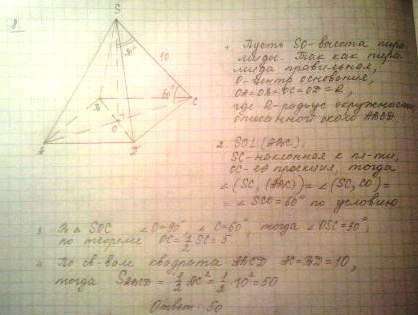 8
S
30°
10
B
60°
C
O
A
D
1. Пусть SO - высота пира-
миды. Так как пира-
мида правильная,
O - центр основания,
OA=OB=OC=OD=R,
где R - радиус окружности,
описанной около ABCD.
2. SO⊥(ABC),
SC - наклонная к пл-ти,
OC - её проекция, тогда
∠(SC, (ABC)) = ∠(SC, CO) =
= ∠SCO = 60° по условию
3. В △ SOC ∠O=90° ∠C=60°, тогда ∠OSC=30°,
по теореме OC = 1/2 SC = 5
4. По св-вам квадрата ABCD AC=BD=10,
тогда SABCD = 1/2 AC² = 1/2 · 10² = 50
Ответ: 50